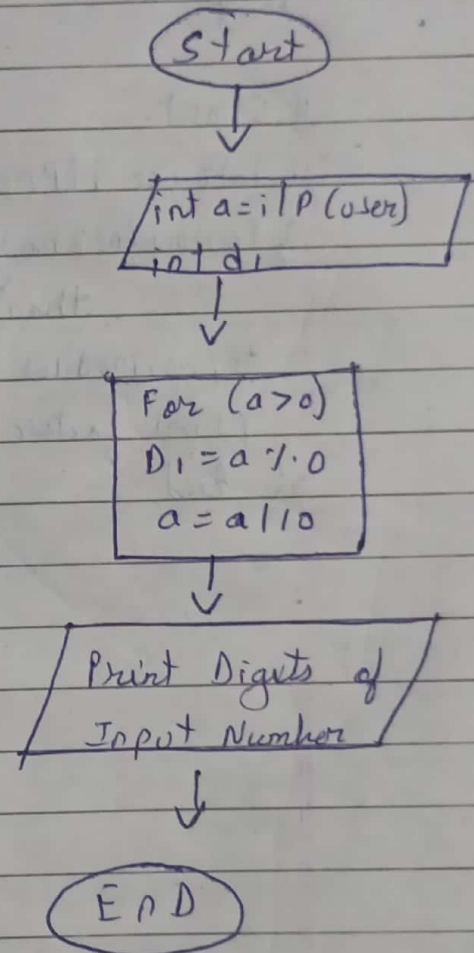 Start
int a = i/P (user)
int d1
For (a>0)
D1 = a % 0
a = a / 10
Print Digits of
Input Number
EnD